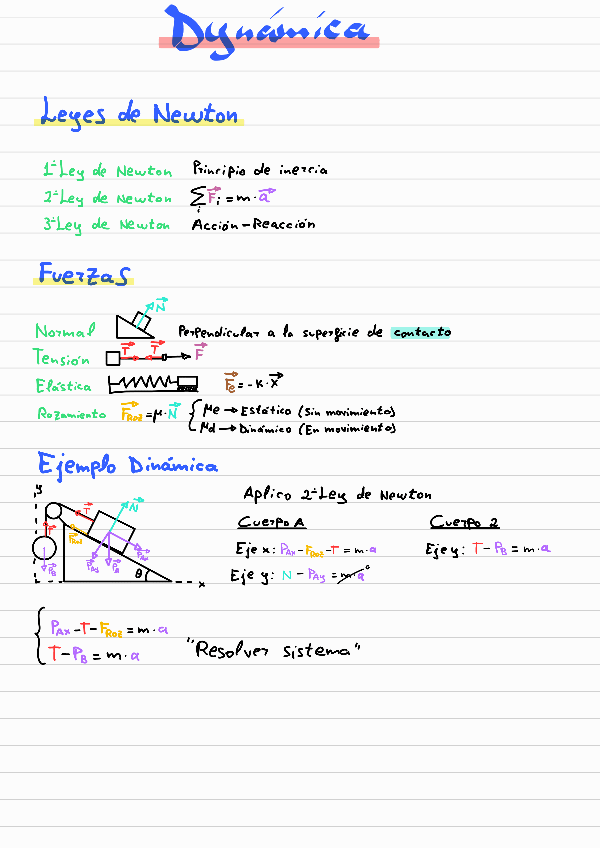 Dynámica
Leyes de Newton
1ª Ley de Newton Principio de inercia
2ª Ley de Newton ∑ᵢ F⃗ᵢ = m · a⃗
3ª Ley de Newton Acción - Reacción
Fuerzas
N⃗
Normal Perpendicular a la superficie de contacto
Tensión T⃗ T⃗ F⃗
Elástica F⃗e = -K · x⃗
Rozamiento F⃗Roz = μ · N⃗ { μe → Estático (Sin movimiento)
μd → Dinámico (En movimiento)
Ejemplo Dinámica
y T⃗ N⃗ T⃗ F⃗Roz P⃗Ax P⃗Ay P⃗B θ x
Aplico 2ª Ley de Newton
Cuerpo A Cuerpo 2
Eje x: PAx - FRoz - T = m · a Eje y: T - PB = m · a
Eje y: N - PAy = m · a 0
PAx - T - FRoz = m · a
T - PB = m · a
"Resolver sistema"